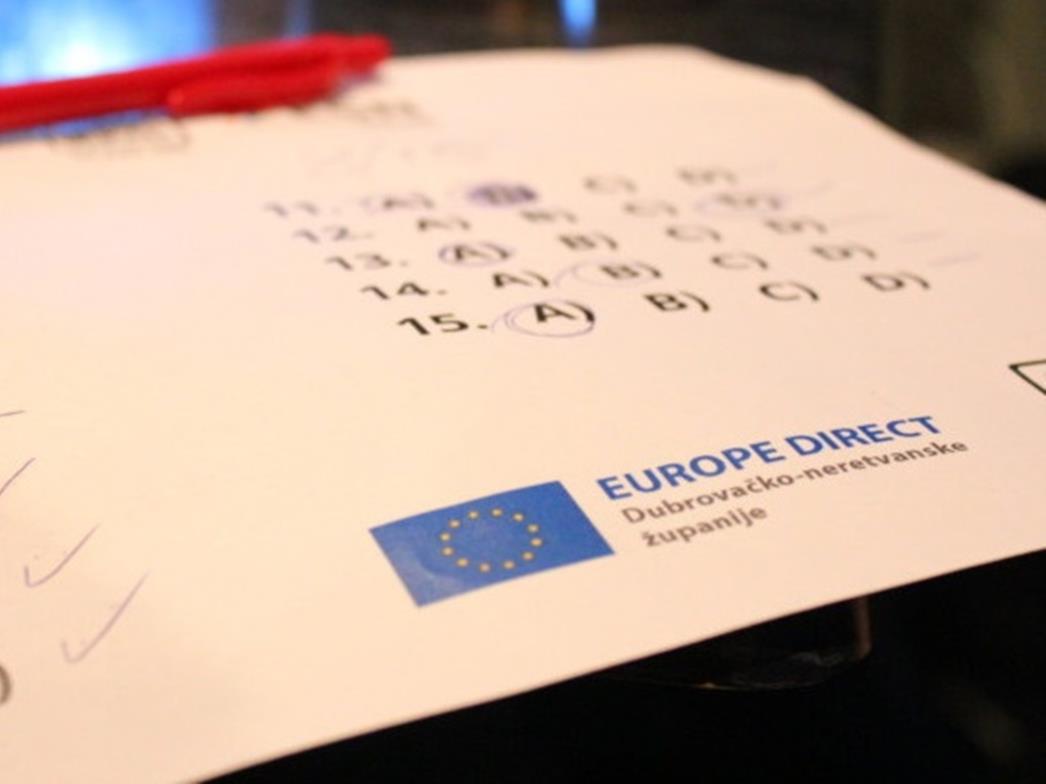 11. A) B) C) D)
12. A) B) C) D)
13. A) B) C) D)
14. A) B) C) D)
15. A) B) C) D)
EUROPE DIRECT
Dubrovačko-neretvanske
županije